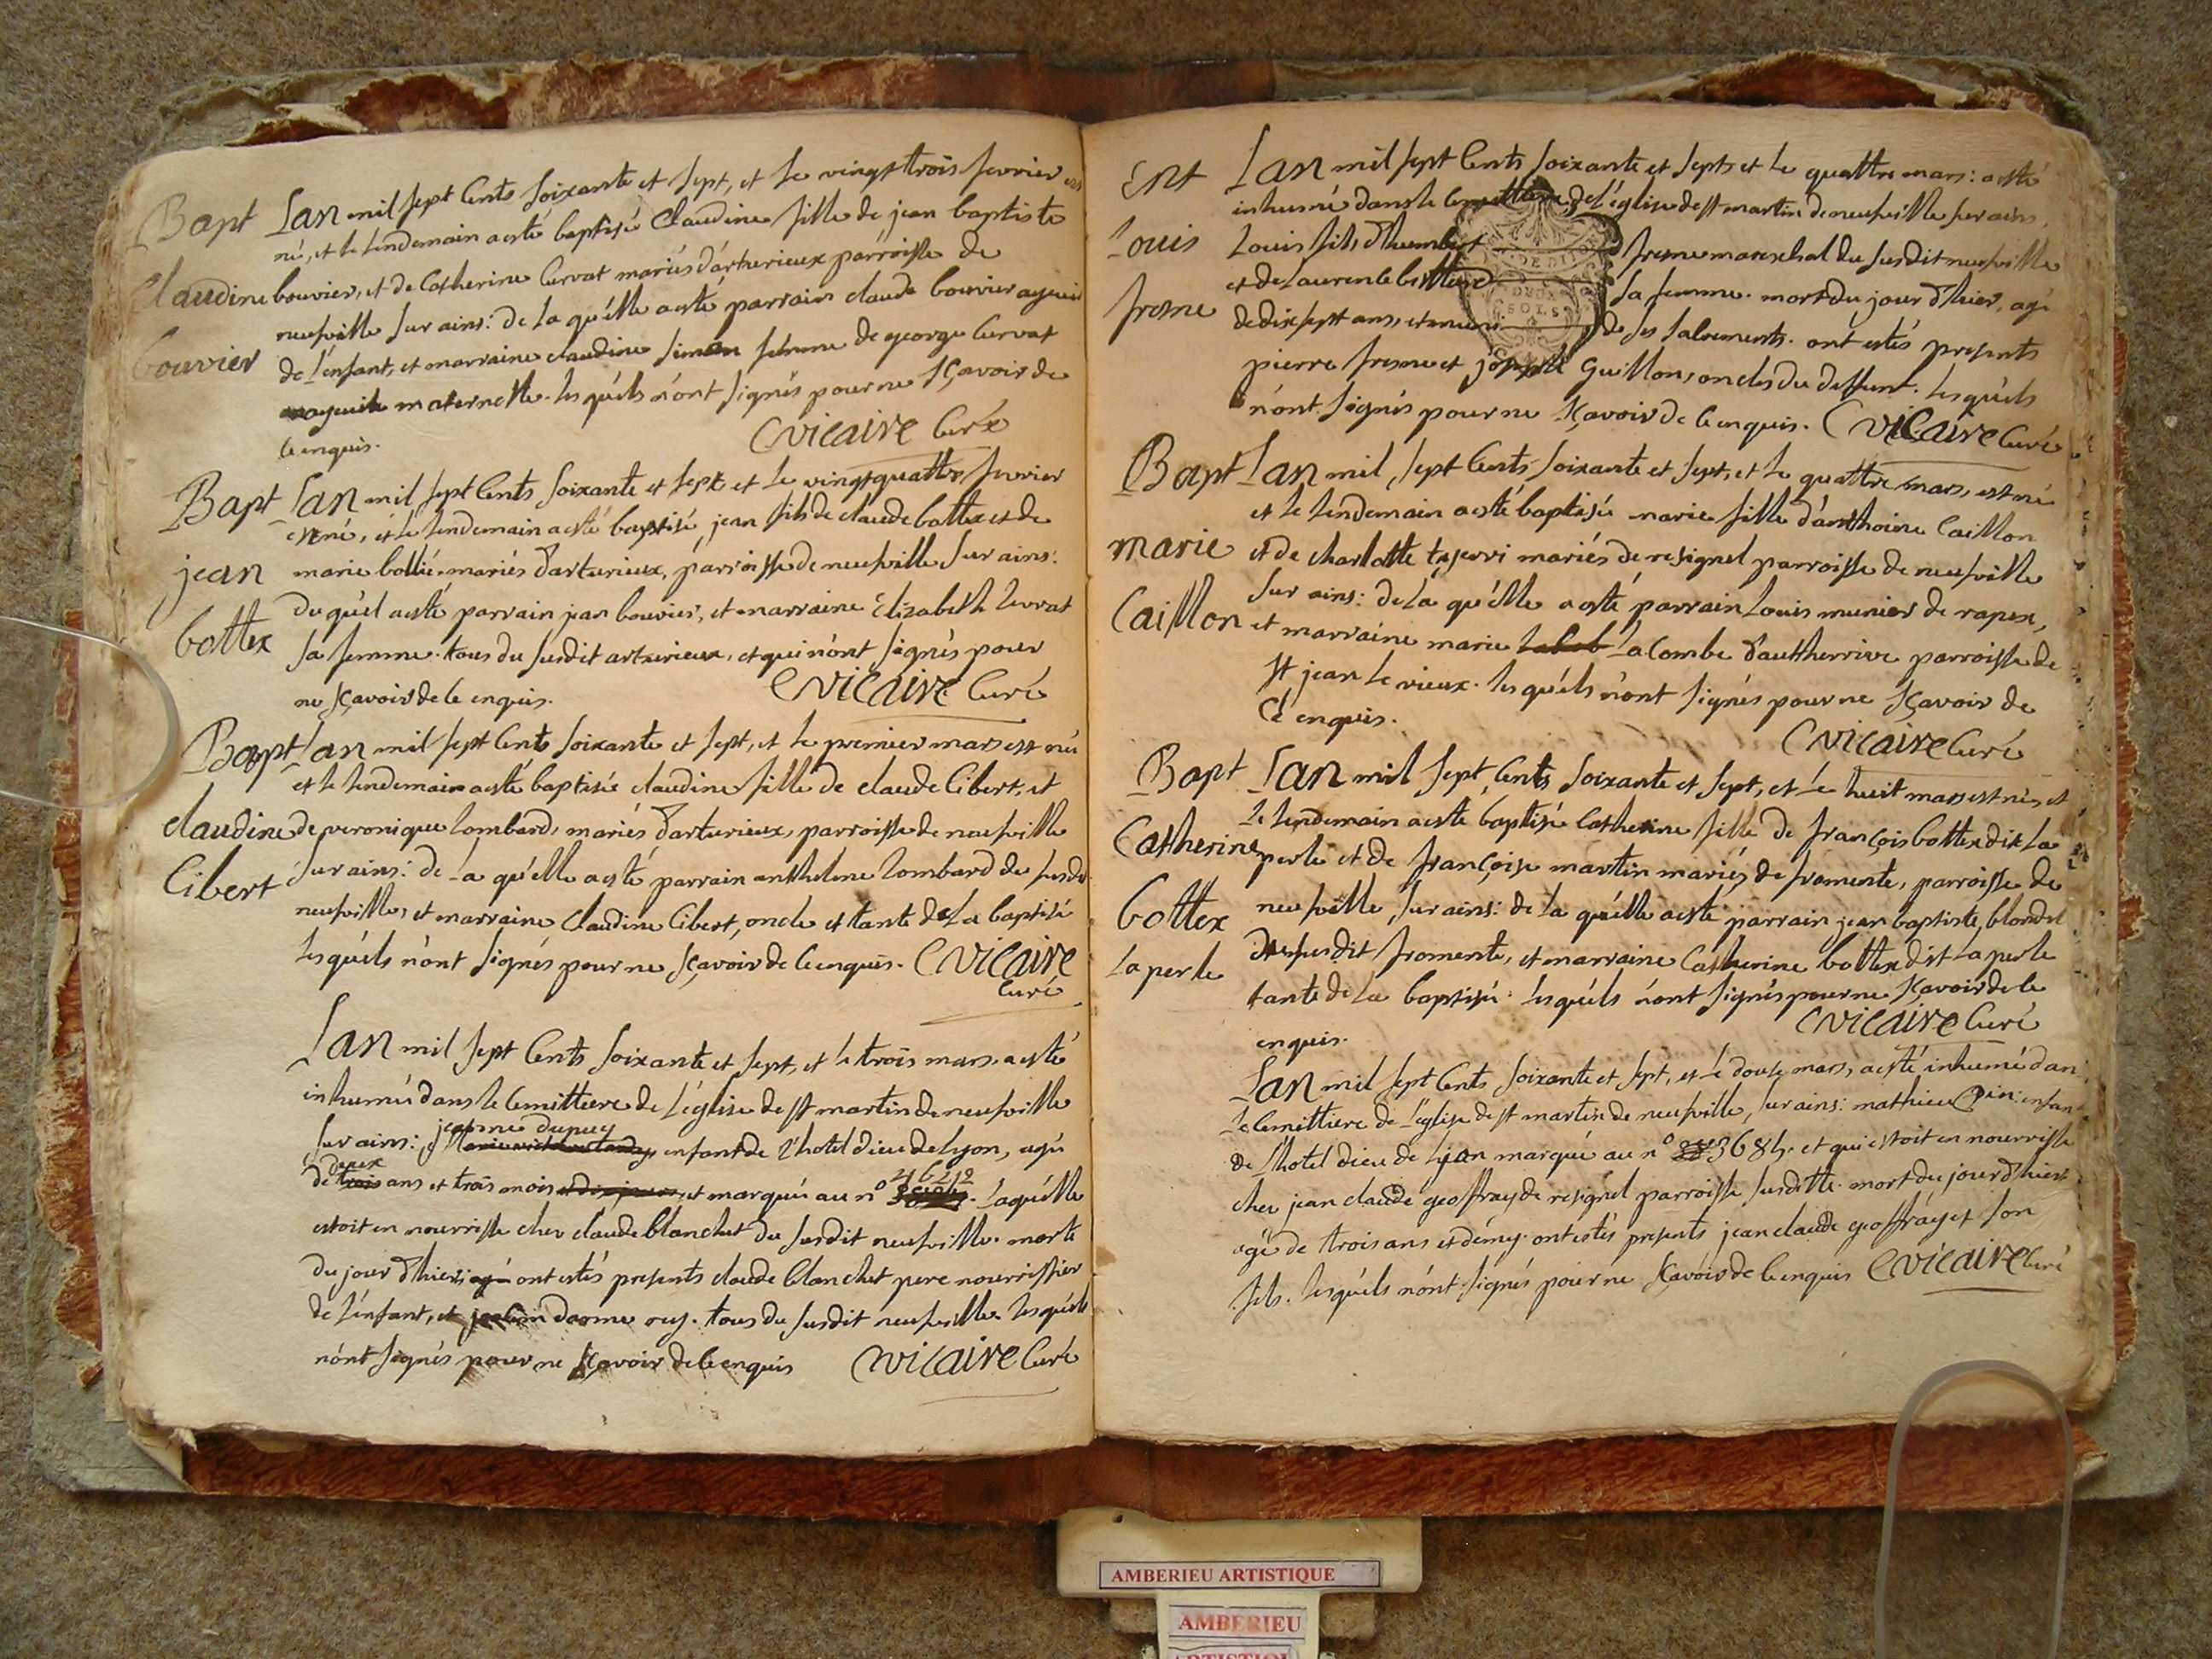 Bapt
Claudine
bouvier
Lan mil sept Cents soixante et sept, et le vingt trois fevrier est
né, et le lendemain aesté baptisé Claudine fille de jean baptiste
bouvier, et de Catherine Curvat mariés d'arturieux parroisse de
neufville sur ains: de la qu'elle aesté parrain claude bouvier ayeuil
de l'enfant, et marraine claudine siman femme de george Curvat
ayeule maternelle. les quéls n'ont signés pour ne sçavoir de
ce enquis.
Cvicaire Curé
Bapt
jean
bottex
Lan mil sept Cents soixante et sept et le vingt quattre fevrier
est né, et le lendemain aesté baptisé jean fils de claude bottex et de
marie bollié mariés d'arturieux, parroisse de neufville sur ains:
du quél aesté parrain jan bouvier, et marraine Elizabeth
sa femme. tous du susdit arturieux, et qui n'ont signés pour
ne sçavoir de ce enquis.
Cvicaire Curé
Bapt
claudine
Cibert
Lan mil sept Cents soixante et sept, et le premier mars est née
et le lendemain aesté baptisée claudine fille de claude Cibert, et
de veronique lombard, mariés d'arturieux, parroisse de neufville
sur ains: de la qu'elle aesté parrain anthelme lombard du susdt
neufville, et marraine claudine Cibert, oncle et tante de la baptisé
les quéls n'ont signés pour ne sçavoir de ce enquis. Cvicaire
Curé
Lan mil sept Cents soixante et sept, et le trois mars aesté
inhumée dans le Cemittiere de l'église de st martin de neufville
jeanne dupuy
sur ains: enfant de l'hotel dieu de lyon, agé
deux 21621 9
de trois ans et trois mois et marquée au n° laquélle
estoit en nourrisse cher claude blanchet du susdit neufville. morte
du jour d'hier ont estés presents claude blanchet pere nourrissier
de l'enfant, et darme ruy. tous du susdit neufville. les quéls
n'ont signés pour ne sçavoir de ce enquis Cvicaire Curé
Ent
Louis
fresne
Lan mil sept Cents soixante et sept et le quattre mars: aesté
inhumé dans le Cemittiere de l'église de st martin de neufville sur ains.
Louis fils d'humbert fresne mareschal du susdit neufville
et de Laurence sa femme. mort du jour d'hier, agé
de dix sept ans, et muni de ses sacrements. ont estés presents
pierre fresne et joseph Guillon, oncles du deffunt. les quéls
n'ont signés pour ne sçavoir de ce enquis. Cvicaire Curé
Bapt
marie
Caillon
Lan mil sept Cents soixante et sept, et le quattre mars, est né
et le lendemain aesté baptisée marie fille d'anthoine Caillon
et de charlotte mariés de resignel parroisse de neufville
sur ains: de la qu'elle aesté parrain Louis munier de rapex,
et marraine marie la Combe d'autherrive parroisse de
st jean le vieux. les quéls n'ont signés pour ne sçavoir de
Ce enquis.
Cvicaire Curé
Bapt
Catherine
bottex
la perle
Lan mil sept Cents soixante et sept, et le huit mars est née, et
le lendemain aesté baptisée Catherine fille de françois bottex dit la
perle et de françoise martin mariés de fromente, parroisse de
neufville sur ains: de la qu'elle aesté parrain jean baptiste blondel
du susdit fromente, et marraine Catherine bottex dit la perle
tante de la baptisée. les quéls n'ont signés pour ne sçavoir de ce
enquis.
Cvicaire Curé
Lan mil sept Cents soixante et sept, et le douse mars, aesté inhumé dans
le Cemittiere de l'église de st martin de neufville sur ains: mathieu enfant
de l'hotel dieu de lyon marqué au n° et qui estoit en nourrisse
cher jean claude geoffray de resignel parroisse susditte. mort du jour d'hier
agé de trois ans et démy. ont estés presents jean claude geoffray et son
fils. les quéls n'ont signés pour ne sçavoir de ce enquis Cvicaire Curé
AMBERIEU ARTISTIQUE
AMBERIEU
ARTISTIQUE